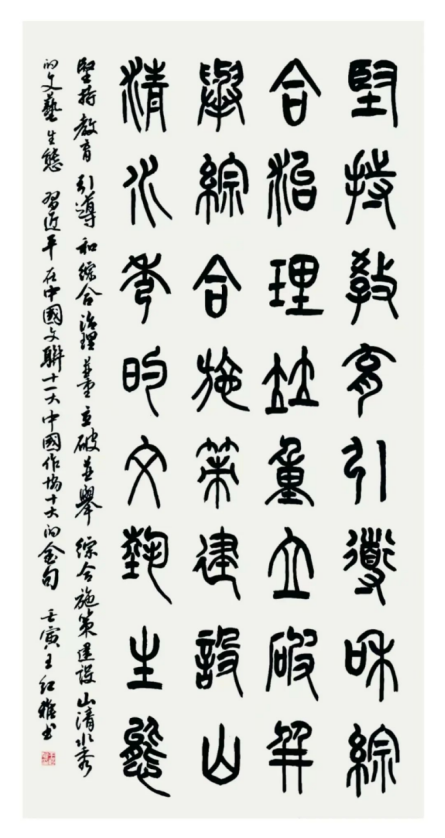 堅持教育引導和綜
合治理竝重立破并
舉綜合施策建設山
清水秀的文藝生態
堅持教育引導和綜合治理並重立破並舉綜合施策建設山清水秀
的文藝生態 習近平在中國文聯十一大中國作協十大的金句 壬寅王紅书